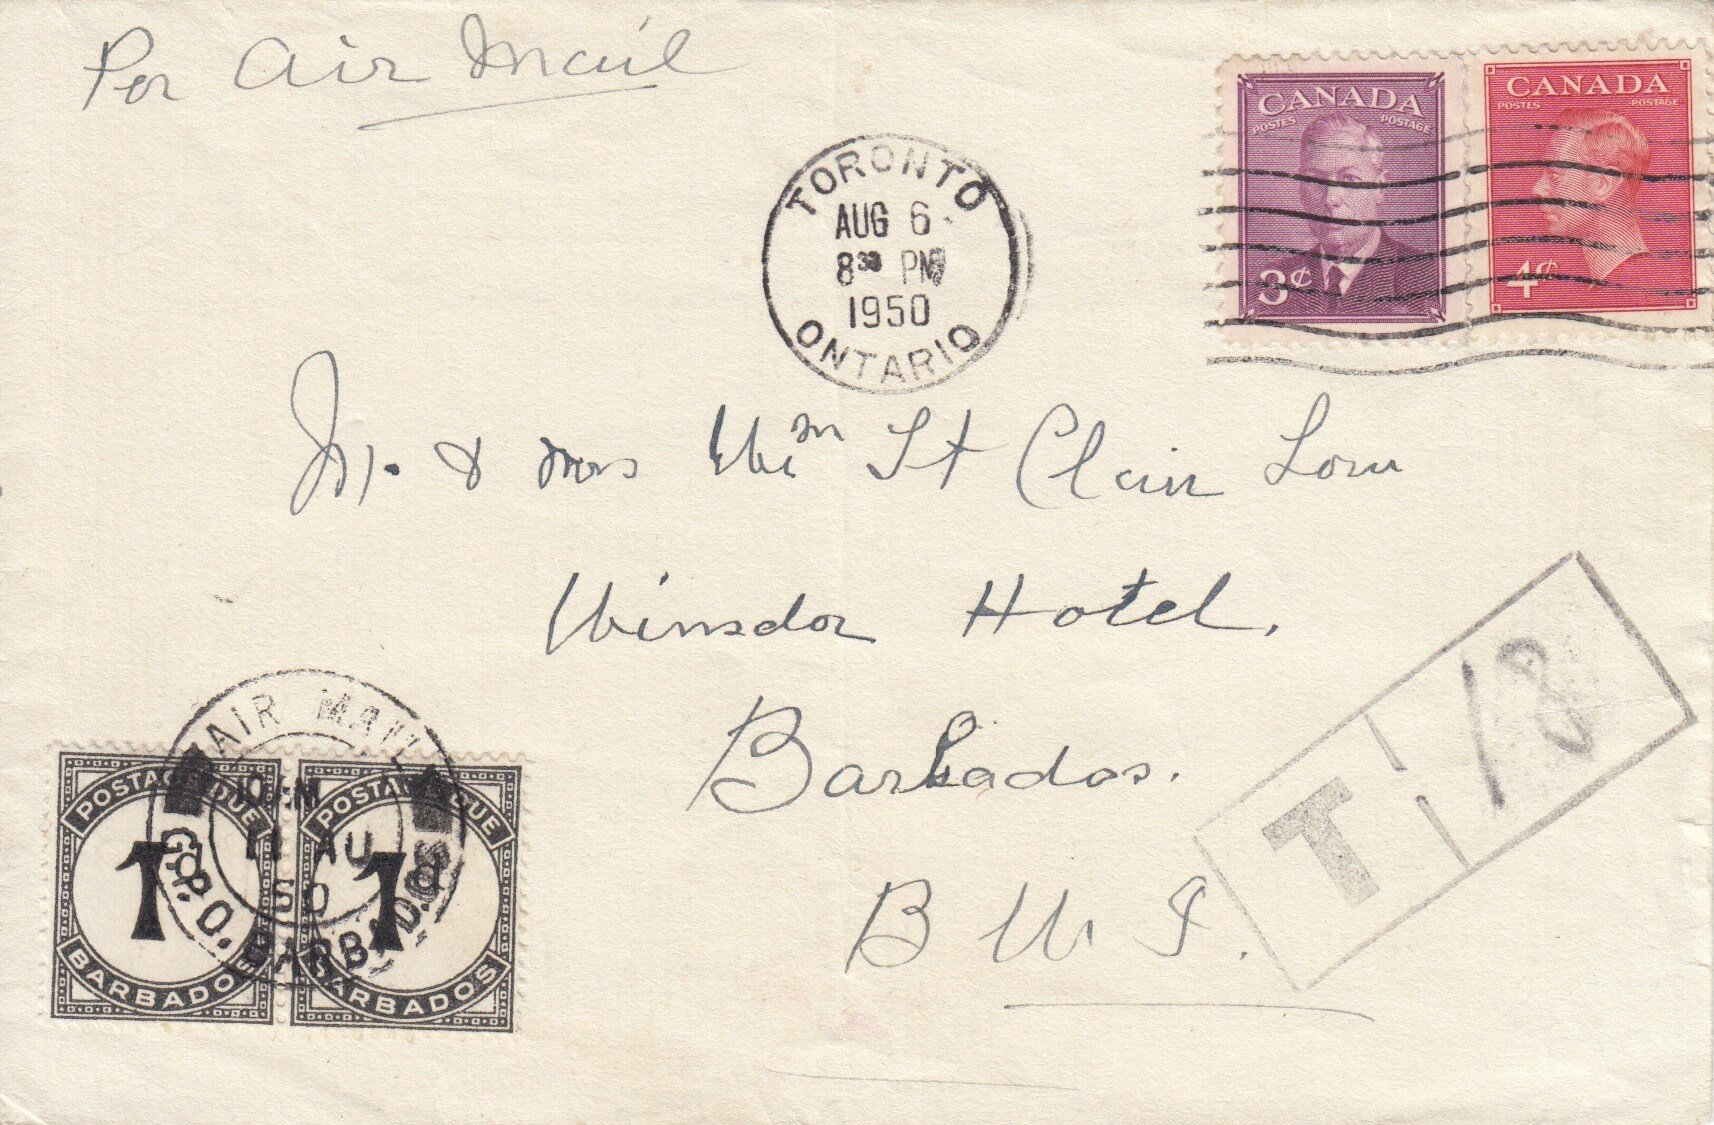 Per Air Mail
CANADA
POSTES POSTAGE
3¢
CANADA
POSTES POSTAGE
4¢
TORONTO
AUG 6
8³⁰ PM
1950
ONTARIO
Mr. & Mrs Wm St Clair Low
Winsdor Hotel.
Barbados.
B W I.
T
AIR MAIL
11 AU
50
G.P.O. BARBADOS
POSTAGE DUE
1D
BARBADOS
POSTAGE DUE
1D
BARBADOS